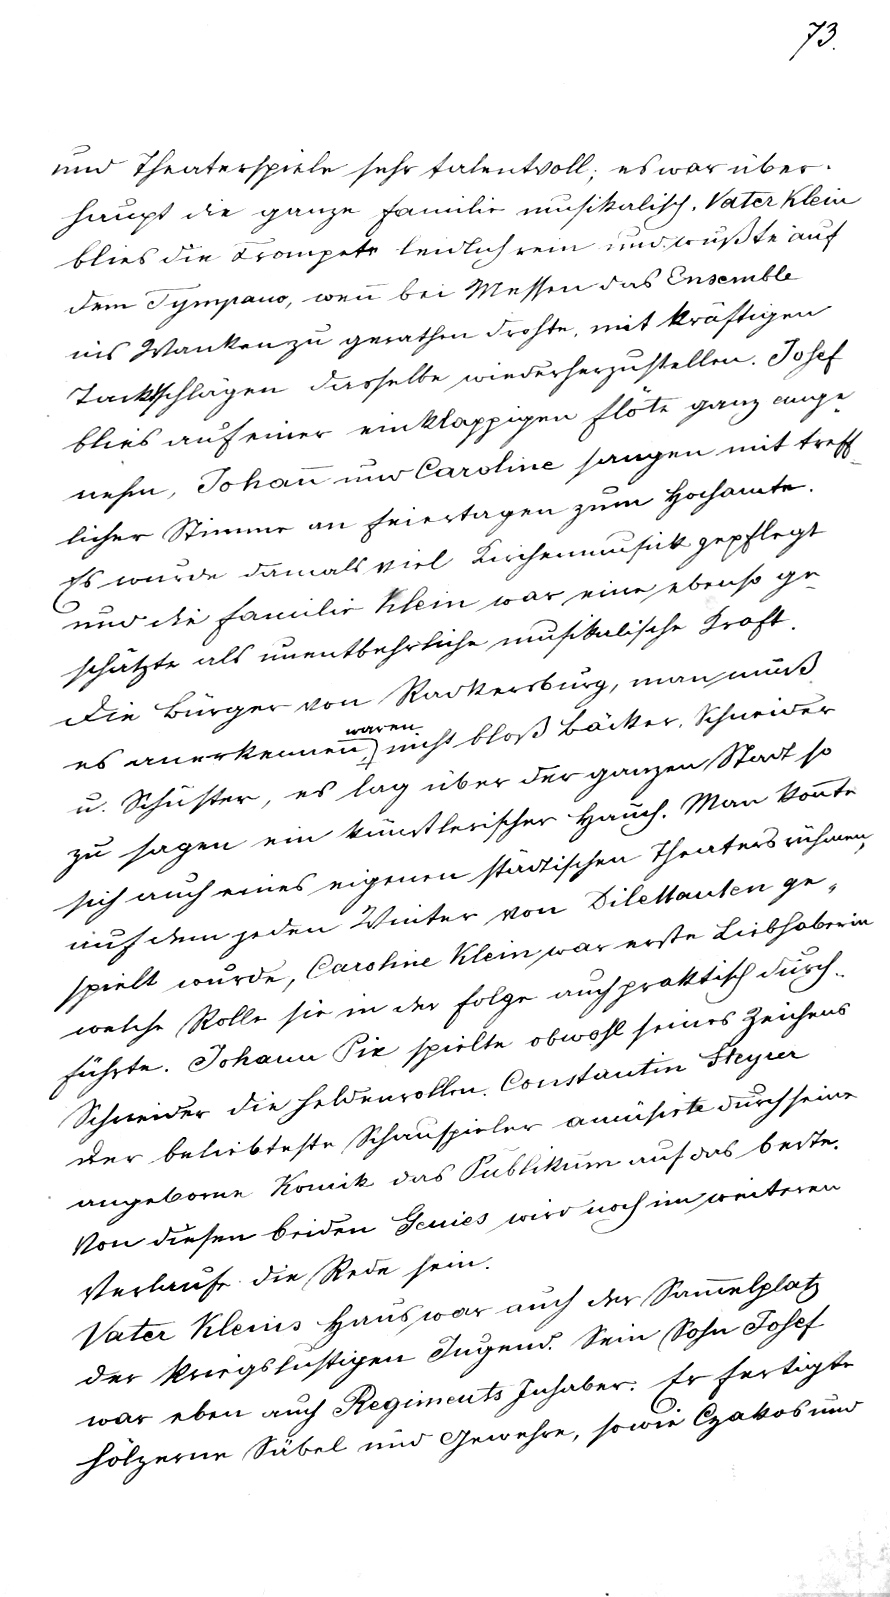 73.
und Theaterspiele sehr talentvoll; es war über-
haupt die ganze Familie musikalisch. Vater Klein
blies die Trompete leidlich rein und wußte auf
dem Tympano, weñ bei Messen das Ensemble
ins Wanken zu gerathen drohte, mit kräftigen
Tacktschlägen dasselbe wiederherzustellen. Josef
blies auf einer einklappigen Flöte ganz ange-
nehm, Johañ und Caroline sangen mit treff-
licher Stimme an Feiertagen zum Hochamte.
Es wurde damals viel Kirchenmusick gepflegt
und die Familie Klein war eine ebenso ge-
schätzte als unentbehrliche musikalische Kraft.
Die Bürger von Radkersburg, man muß
waren
es anerkennen, nicht bloß Bäcker, Schneider
u. Schuster, es lag über der ganzen Stadt so
zu sagen ein künstlerischer Hauch. Man koñte
sich auch eines eigenen städtischen Theaters rühmen,
auf dem jeden Winter von Dilettanten ge-
spielt wurde, Caroline Klein war erste Liebhaberin
welche Rolle sie in der Folge auch praktisch durch-
führte. Johann Pix spielte obwohl seines Zeichens
Schneider die Heldenrollen. Constantin Steyrer
der beliebteste Schauspieler amüsirte durch seine
angeborne Komik das Publikum auf das beste.
Von diesen beiden Genies wird noch im weiteren
Verlaufe die Rede sein.
Vater Kleins Haus war auch der Sam̃elplatz
der kriegslustigen Jugend. Sein Sohn Josef
war eben auch Regiments Inhaber. Er fertigte
hölzerne Säbel und Gewehre, sowie Czakos und